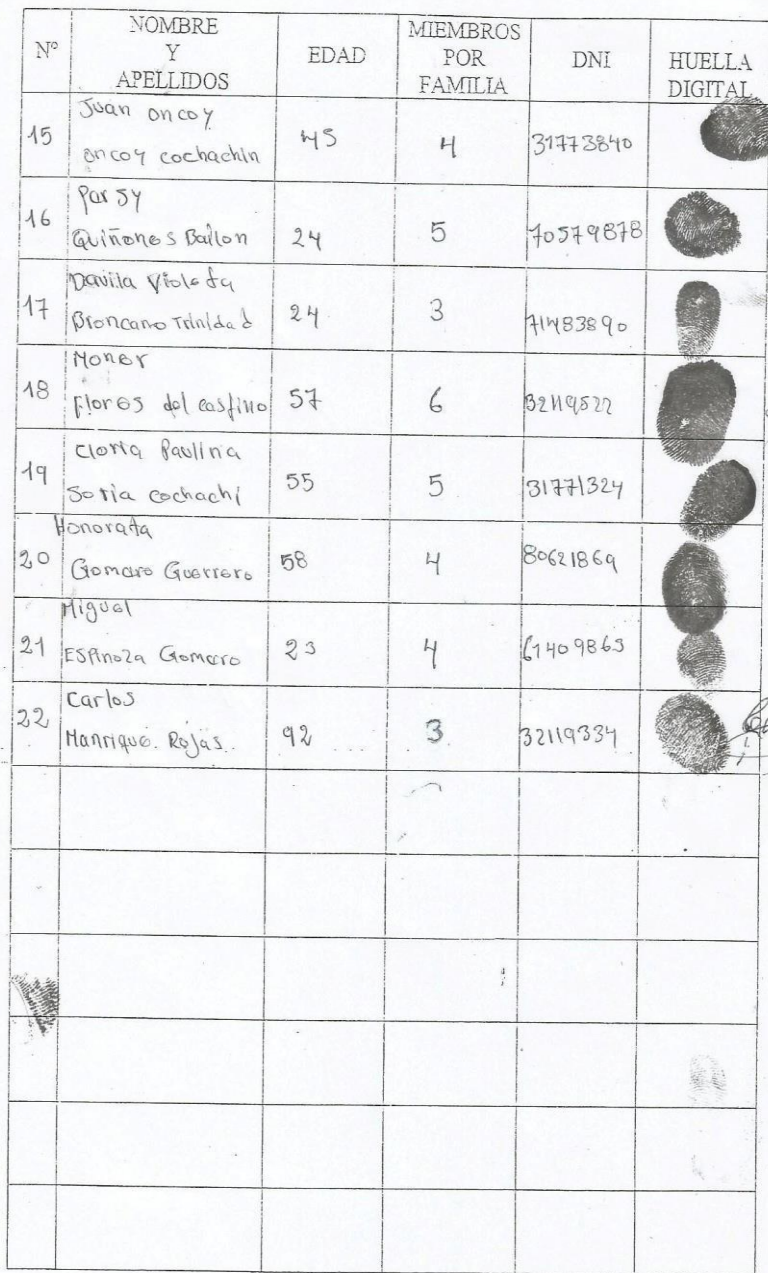 Nº NOMBRE Y APELLIDOS EDAD MIEMBROS POR FAMILIA DNI HUELLA DIGITAL
15 Juan oncoy oncoy cochachin 45 4 31773840
16 Parsy Quiñones Bailon 24 5 70579878
17 Davila Violeta Broncano Trinidad 24 3 71483890
18 Moner Flores del castillo 57 6 32119522
19 Cloria Paulina Soria cochachi 55 5 31771324
20 Honorata Gomaro Guerrero 58 4 80621869
21 Miguel Espinoza Gomero 23 4 61409863
22 Carlos Manrique Rojas 92 3 32119334